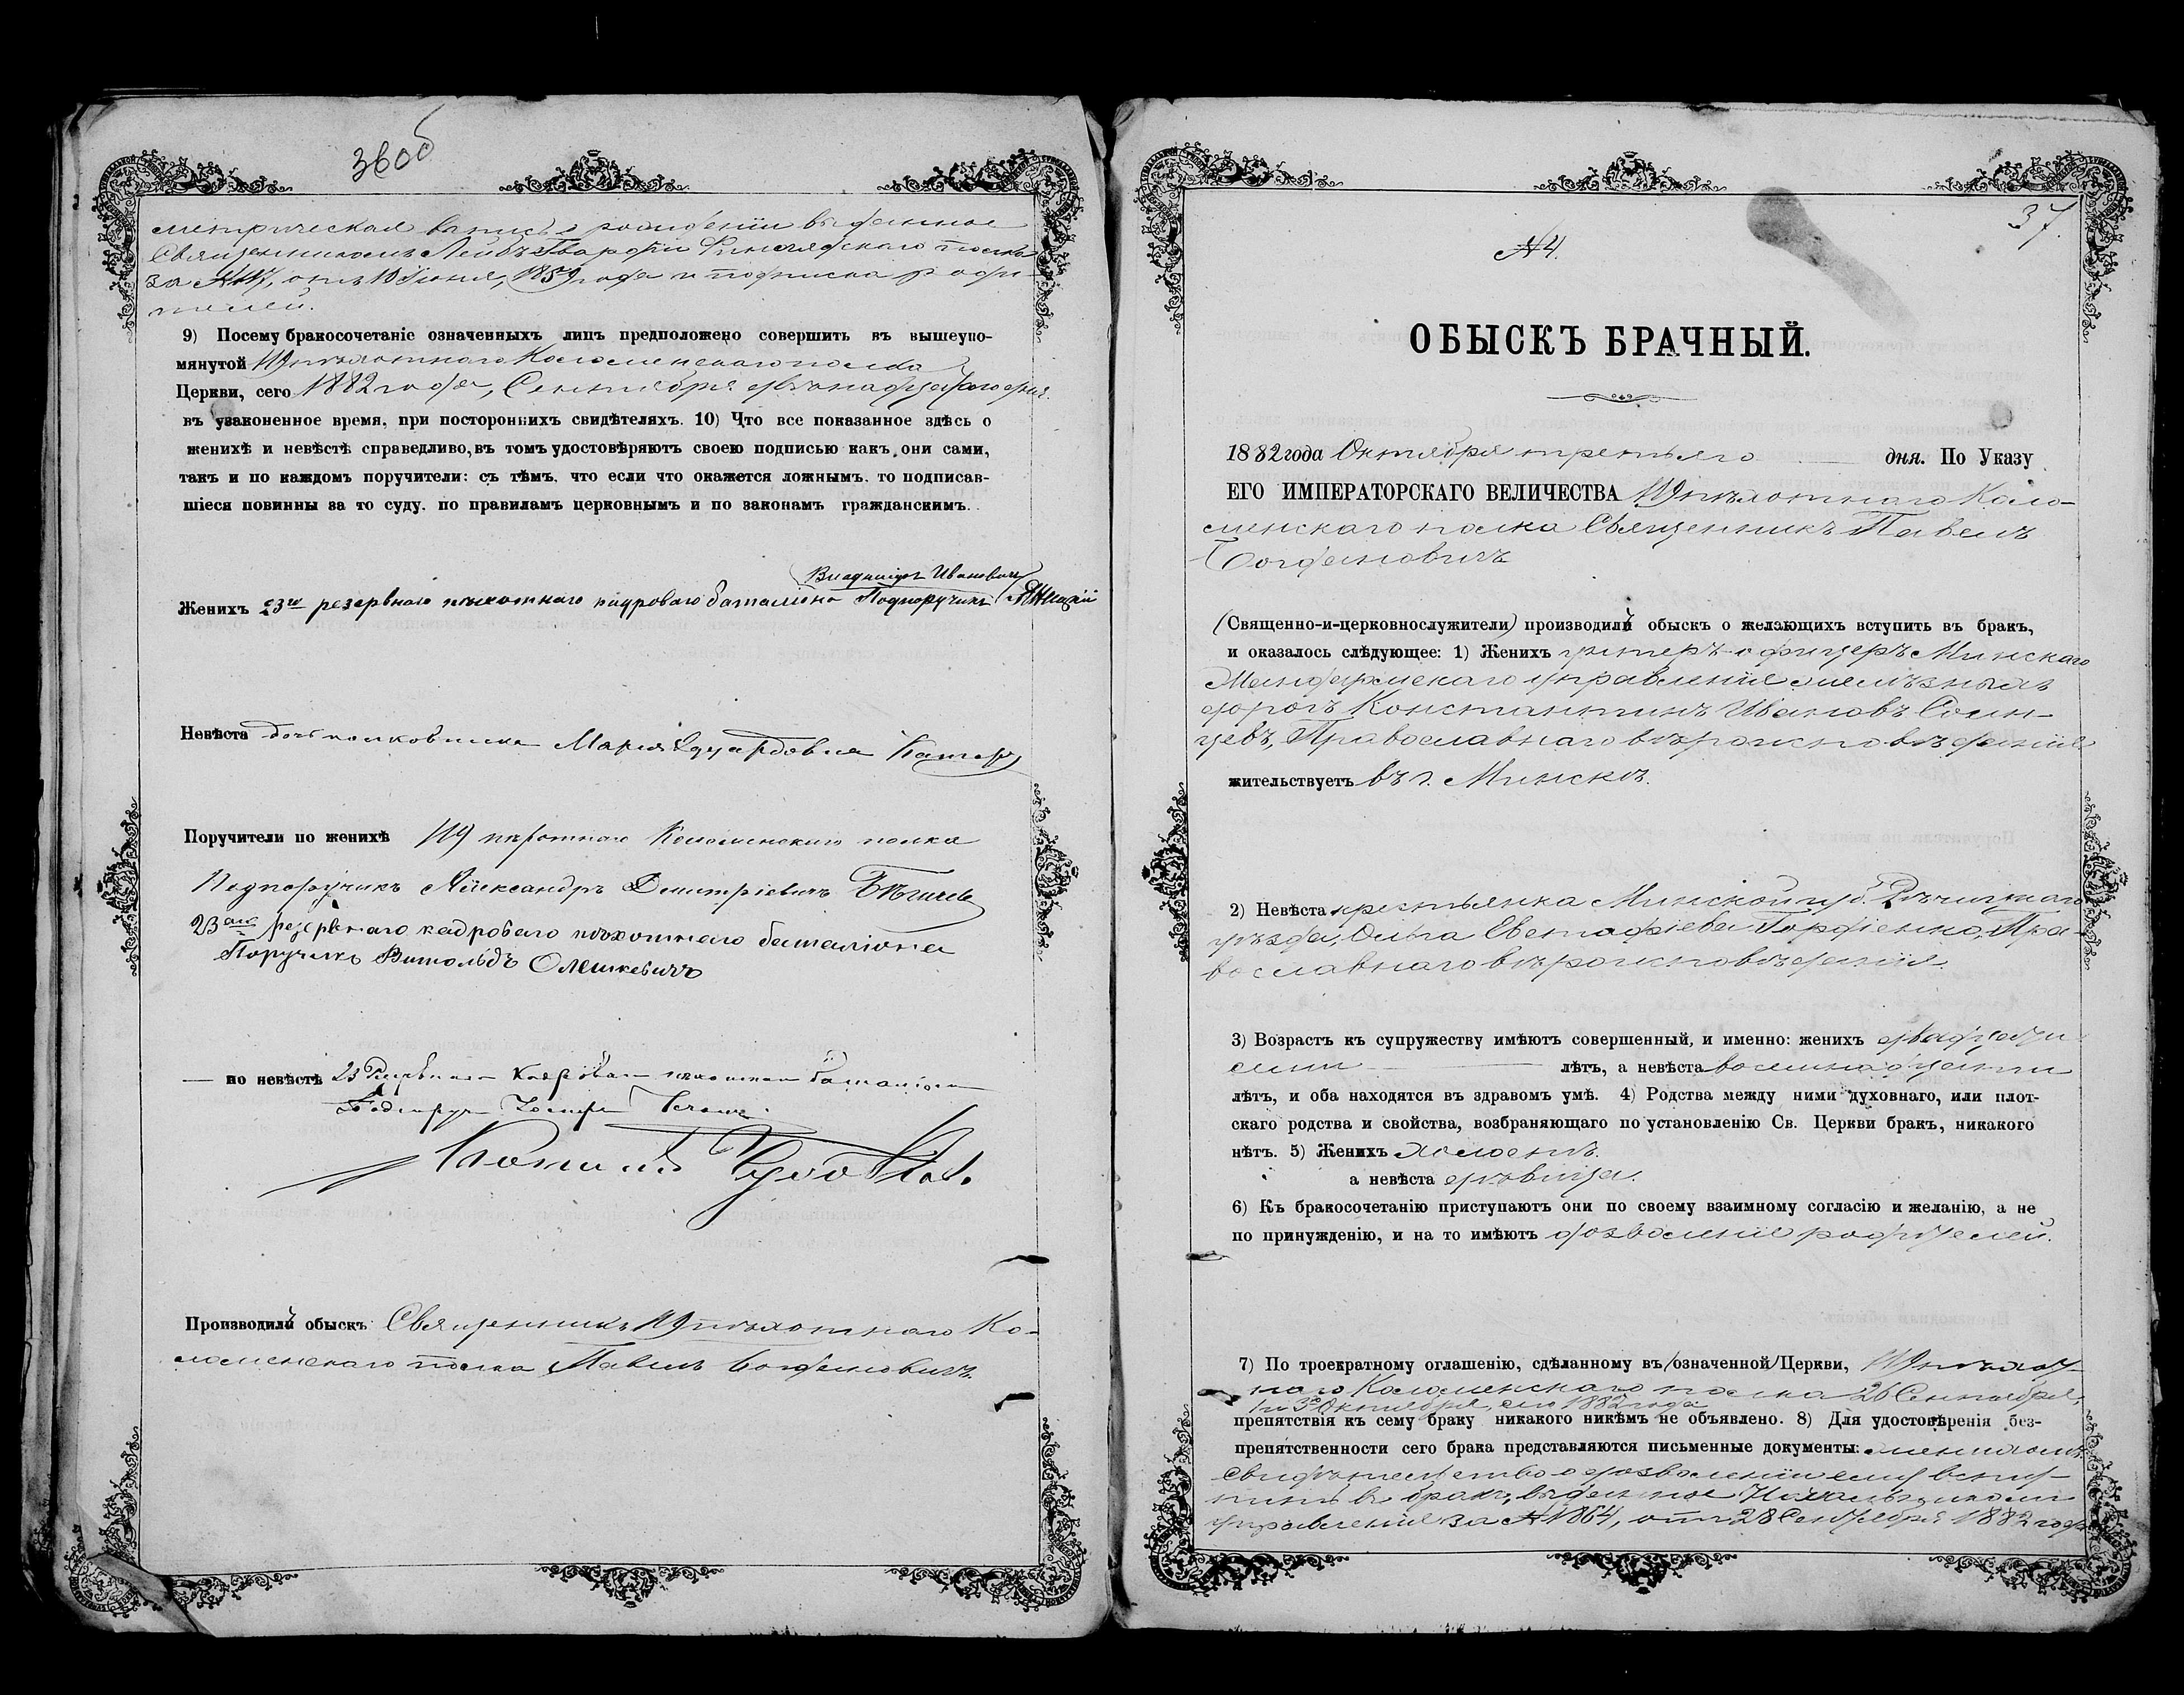 36об
метрическая запись о рожденіи выданное
Священникомъ Лейбъ Гвардіи Финляндскаго полка
за №117, отъ 10 Іюня, 1859 года и подписка роди-
телей.
9) Посему бракосочетаніе означенныхъ лицъ предположено совершить въ вышеупо-
мянутой 119 пѣхотнаго Коломенскаго полка
Церкви, сего 1882 года, Сентября двѣнадцатаго дня.
въ узаконенное время, при постороннихъ свидѣтеляхъ. 10) Что все показанное здѣсь о
женихѣ и невѣстѣ справедливо, въ томъ удостовѣряютъ своею подписью какъ они сами,
такъ и по каждомъ поручители: съ тѣмъ, что если что окажется ложнымъ, то подписав-
шіеся повинны за то суду, по правиламъ церковнымъ и по законамъ гражданскимъ.
Владиміръ Ивановичъ
Женихъ 23го резервнаго пѣхотнаго кадроваго баталіона Подпоручикъ
Невѣста дочь полковника Марія Эдуардовна
Поручители по женихѣ 119 пѣхотнаго Коломенскаго полка
Подпоручикъ Александръ Дмитріевичъ
23аго резервнаго кадроваго пѣхотнаго баталіона
Поручикъ Витольдъ Олешкевичъ
— по невѣстѣ 23 Резервнаго Кадроваго пѣхотнаго баталіона
Производилъ обыскъ Священникъ 119 пѣхотнаго Ко-
ломенскаго полка Павелъ Богдановичъ.
37.
№4.
ОБЫСКЪ БРАЧНЫЙ.
1882 года Октября третьяго дня. По Указу
ЕГО ИМПЕРАТОРСКАГО ВЕЛИЧЕСТВА 119 пѣхотнаго Коло-
менскаго полка Священникъ Павелъ
Богдановичъ
(Священно-и-церковнослужители) производилъ обыскъ о желающихъ вступить въ бракъ,
и оказалось слѣдующее: 1) Женихъ унтеръ-офицеръ Минскаго
Жандармскаго управленія желѣзныхъ
дорогъ Константинъ Ивановъ Солн-
цевъ, Православнаго вѣроисповѣданія
жительствуетъ въ г. Минскѣ.
2) Невѣста крестьянка Минской губ. Рѣчицкаго
уѣзда, Ольга Евстафіева Гордіенко, Пра-
вославнаго вѣроисповѣданія.
3) Возрастъ къ супружеству имѣютъ совершенный, и именно: женихъ двадцати
семи лѣтъ, а невѣста восемнадцати
лѣтъ, и оба находятся въ здравомъ умѣ. 4) Родства между ними духовнаго, или плот-
скаго родства и свойства, возбраняющаго по установленію Св. Церкви бракъ, никакого
нѣтъ. 5) Женихъ холостъ.
а невѣста дѣвица.
6) Къ бракосочетанію приступаютъ они по своему взаимному согласію и желанію, а не
по принужденію, и на то имѣютъ дозволеніе родителей.
7) По троекратному оглашенію, сдѣланному въ означенной Церкви, 119 пѣхот-
наго Коломенскаго полка 26 Сентября,
1 и 3го Октября, сего 1882 года
препятствія къ сему браку никакого никѣмъ не объявлено. 8) Для удостовѣренія без-
препятственности сего брака представляются письменные документы: женихомъ
свидѣтельство о дозволеніи ему всту-
пить въ бракъ, выданное Начальникомъ
управленія за №1864, отъ 28 Сентября 1882 года